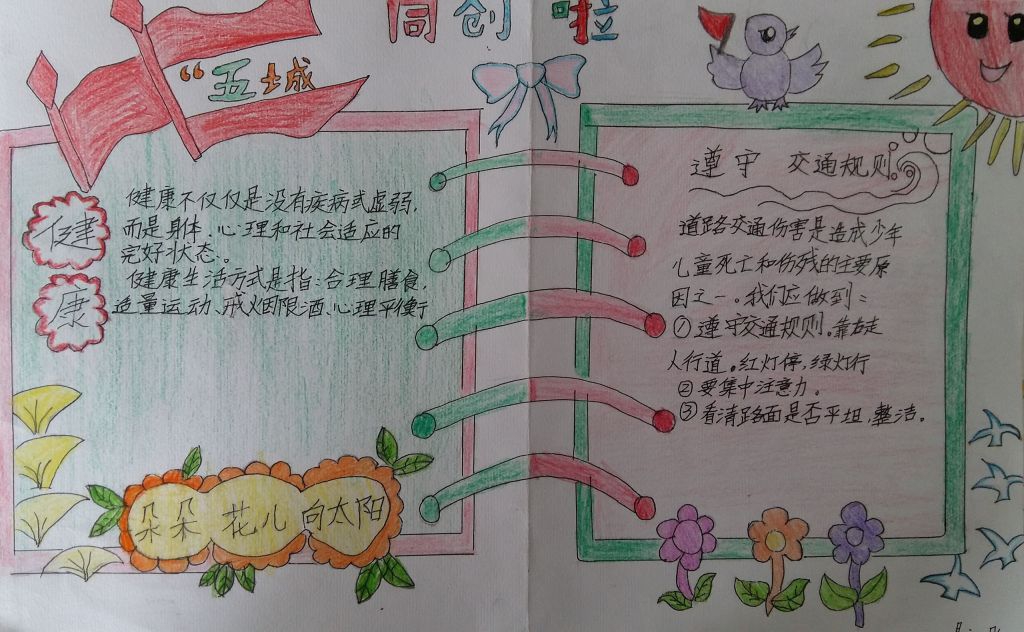 “五城
同创 啦
健
康
健康不仅仅是没有疾病或虚弱,
而是身体、心理和社会适应的
完好状态。
健康生活方式是指:合理膳食,
适量运动、戒烟限酒、心理平衡
朵朵 花儿 向太阳
遵守 交通规则
道路交通伤害是造成少年
儿童死亡和伤残的主要原
因之一。我们应做到:
①遵守交通规则。靠右走
人行道。红灯停,绿灯行
②要集中注意力。
③看清路面是否平坦,整洁。